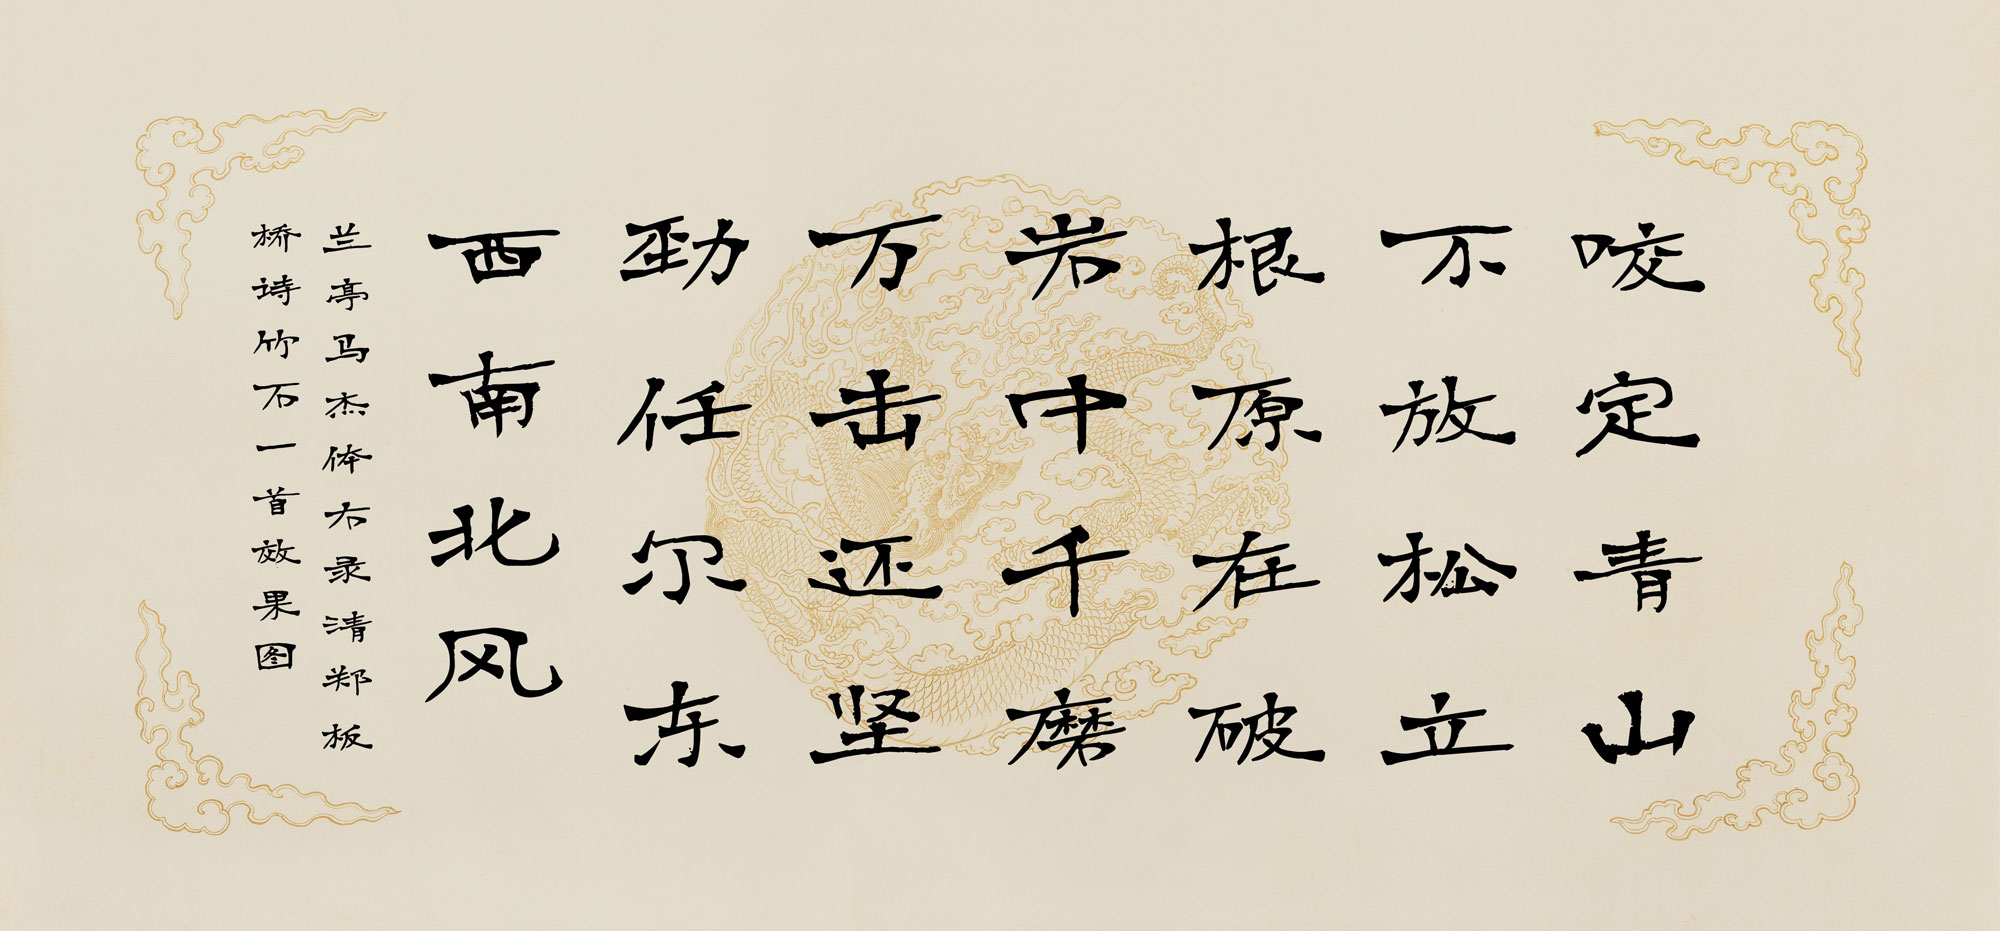 咬定青山
不放松立
根原在破
岩中千磨
万击还坚
劲任尔东
西南北风
兰亭马杰体右录清郑板
桥诗竹石一首效果图